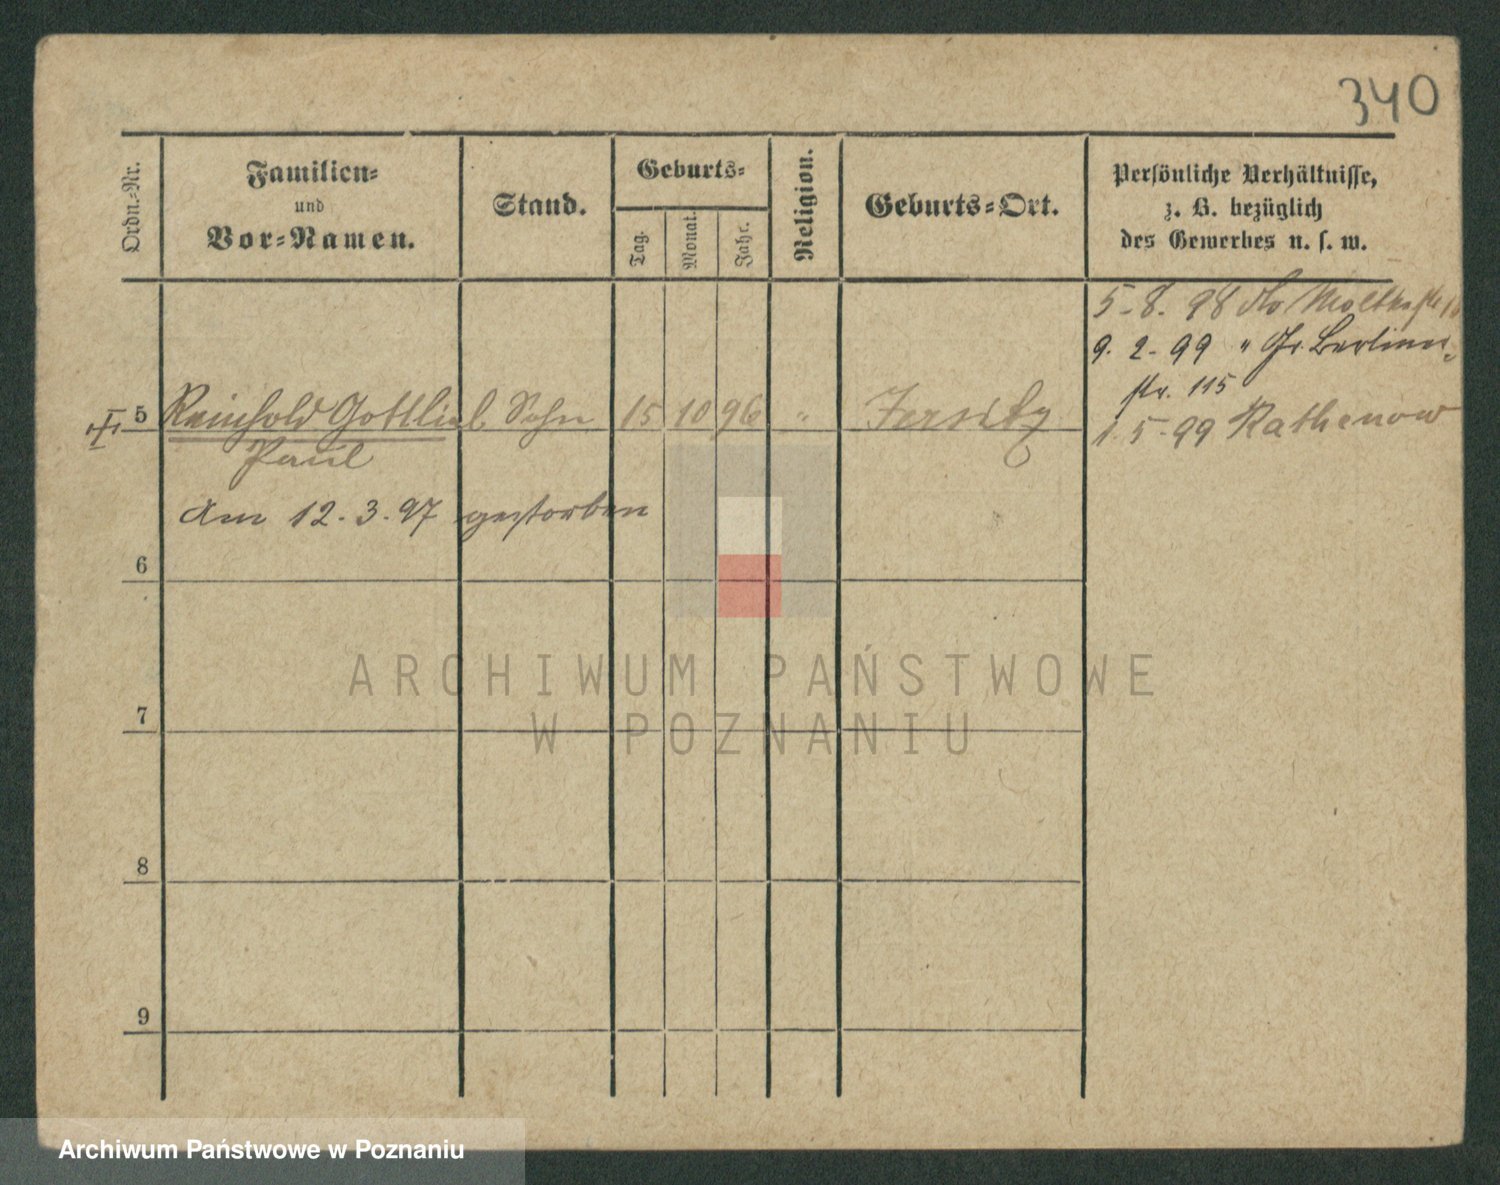 340
Ordn.-Nr.
Familien-
und
Vor-Namen.
Stand.
Geburts-
Tag.
Monat.
Jahr.
Religion.
Geburts-Ort.
Persönliche Verhältnisse,
z. B. bezüglich
des Gewerbes u. s. w.
5.8.98 Moltkestr
9.2.99 " Gr. Berliner-
str. 115
5 Reinhold Gottlieb Sohn 15 10 96 " Jersitz
1.5.99 Rathenow
Paul
am 12.3.97 gestorben
6
ARCHIWUM PAŃSTWOWE
7
W POZNANIU
8
9
Archiwum Państwowe w Poznaniu